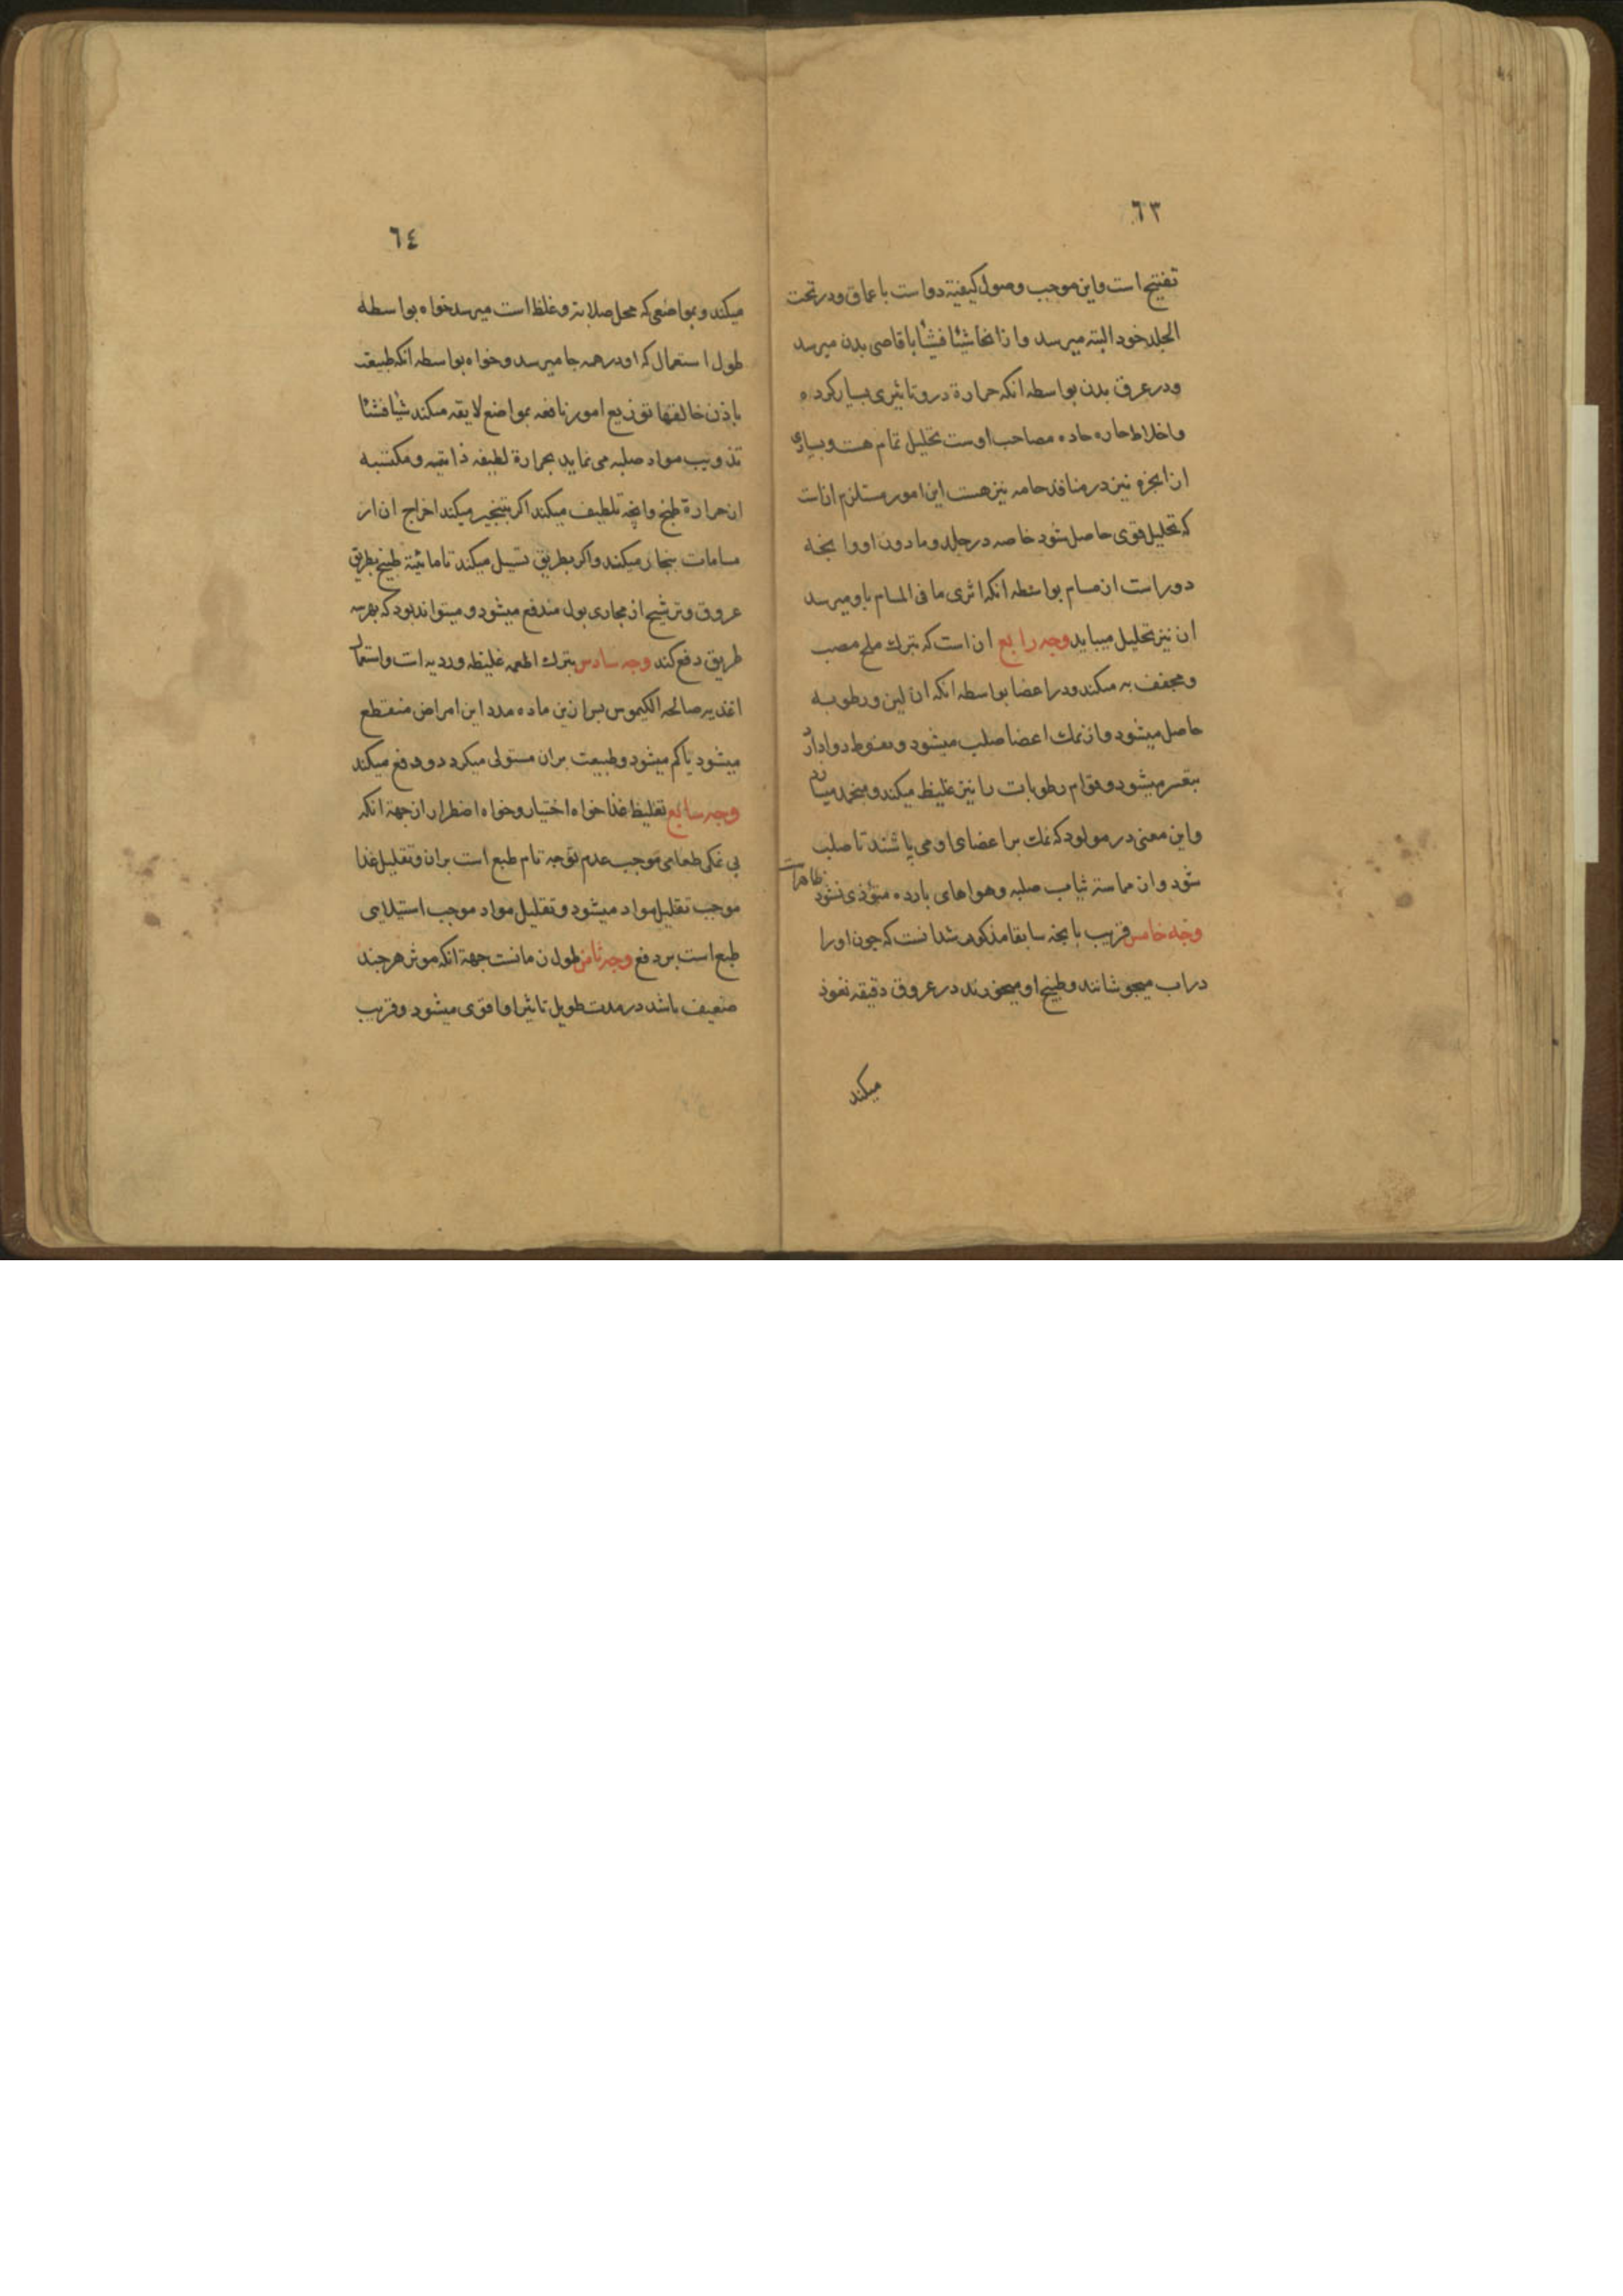 ٦٣
تفتیح است واین موجب وصول کیفیة دواست باعماق ودر تحت
الجلد خود البته میرسد وازانجا شیئا فشیئا باقاصی بدن میرسد
ودر عرق بدن بواسطه انکه حرارة درو تاثیری بسیار کرده
واخلاط حاره حاده مصاحب اوست تحلیل تمام هست وبسیاری
ان ابخره نیز در منافذ حامه نیز هست این امور مستلزم انات
که تحلیل قوی حاصل شود خاصه در جلد ومادون او وانچه
دوراست از مسام بواسطه انکه اثری ما فی المسام باو میرسد
ان نیز تحلیل مییابد وجه رابع ان است که بترك ملح مصب
ومجفف به میکند ودر اعضا بواسطه انکه ان لین ورطوبه
حاصل میشود واز نمك اعضا صلب میشود و دوا دران
بقسر میشود وقوام رطوبات را نیز غلیظ میکند ومنجمد میسازد
واین معنی در مولود که نمك بر اعضای او می پاشند تا صلب
شود واز مماسة ثیاب صلبه وهواهای بارده متؤذی نشود ظاهرات
وجه خامس قریب بانچه سابقا مذکور شد انست که چون اورا
دراب میجوشانند وطبیخ او میخورند در عروق دقیقه نفوذ
میکند
٦٤
میکند وبمواضعی که محل صلابة وغلظ است میرسد خواه بواسطه
طول استعمال که او در همه جا میرسد وخواه بواسطه انکه طبیعت
باذن خالقها توزیع امور نافعه بمواضع لایقه میکند شیئا فشیئا
تذویب مواد صلبه می نماید بحرارة لطیفه ذاتیه ومکتسبه
از حرارة طبخ وانچه تلطیف میکند اکر بتبخیر میکند اخراج ان از
مسامات بنجار میکند واکر بطریق تسیل میکند تا مائیة طبیخ بطریق
عروق وترشیح از مجاری بول مندفع میشود ومیتواند بود که بهر سه
طریق دفع کند وجه سادس بترك اطعمه غلیظه وردیه است واستعمال
اغذیه صالحه الکیموس پس ازین ماده مدد این امراض منقطع
میشود یا کم میشود وطبیعت بران مستولی میکردد ودفع میکند
وجه سابع تغلیظ غذا خواه اختیار وخواه اضطرار از جهة انکه
بی نمکی طعامی موجب عدم توجه تام طبع است بران وتقلیل غذا
موجب تقلیل مواد میشود وتقلیل مواد موجب استیلای
طبع است بر دفع وجه ثامن طول زمانست جهة انکه موثر هر چند
ضعیف باشد در مدت طویل تاثیر او قوی میشود وقریب